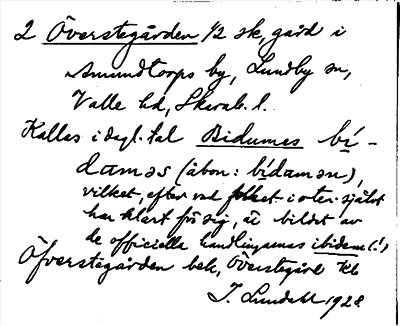 2 Överstegården 1/2 sk, gård i
Amundtorps by, Lundby sn,
Valle hd, Skarab. l.
Kallas i dagl. tal Bidumes bí-
daməs (åbon: bídamən),
vilket, efter vad folket i orten självt
har klart för sig, är bildat av
de officiella handlingarnas ibidem (!)
Öfverstegården bek, Överstegård Kb
I. Lundahl 1928